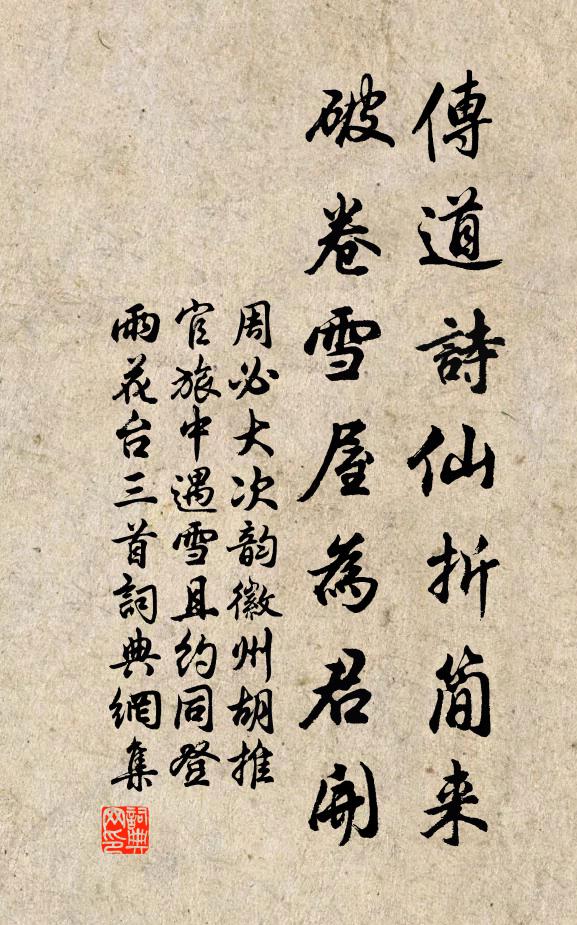 傳道詩仙折简来
破卷雪屋為君開
周必大次韵徽州胡推
官旅中遇雪且约同登
雨花台三首詞典網集
詞典网印